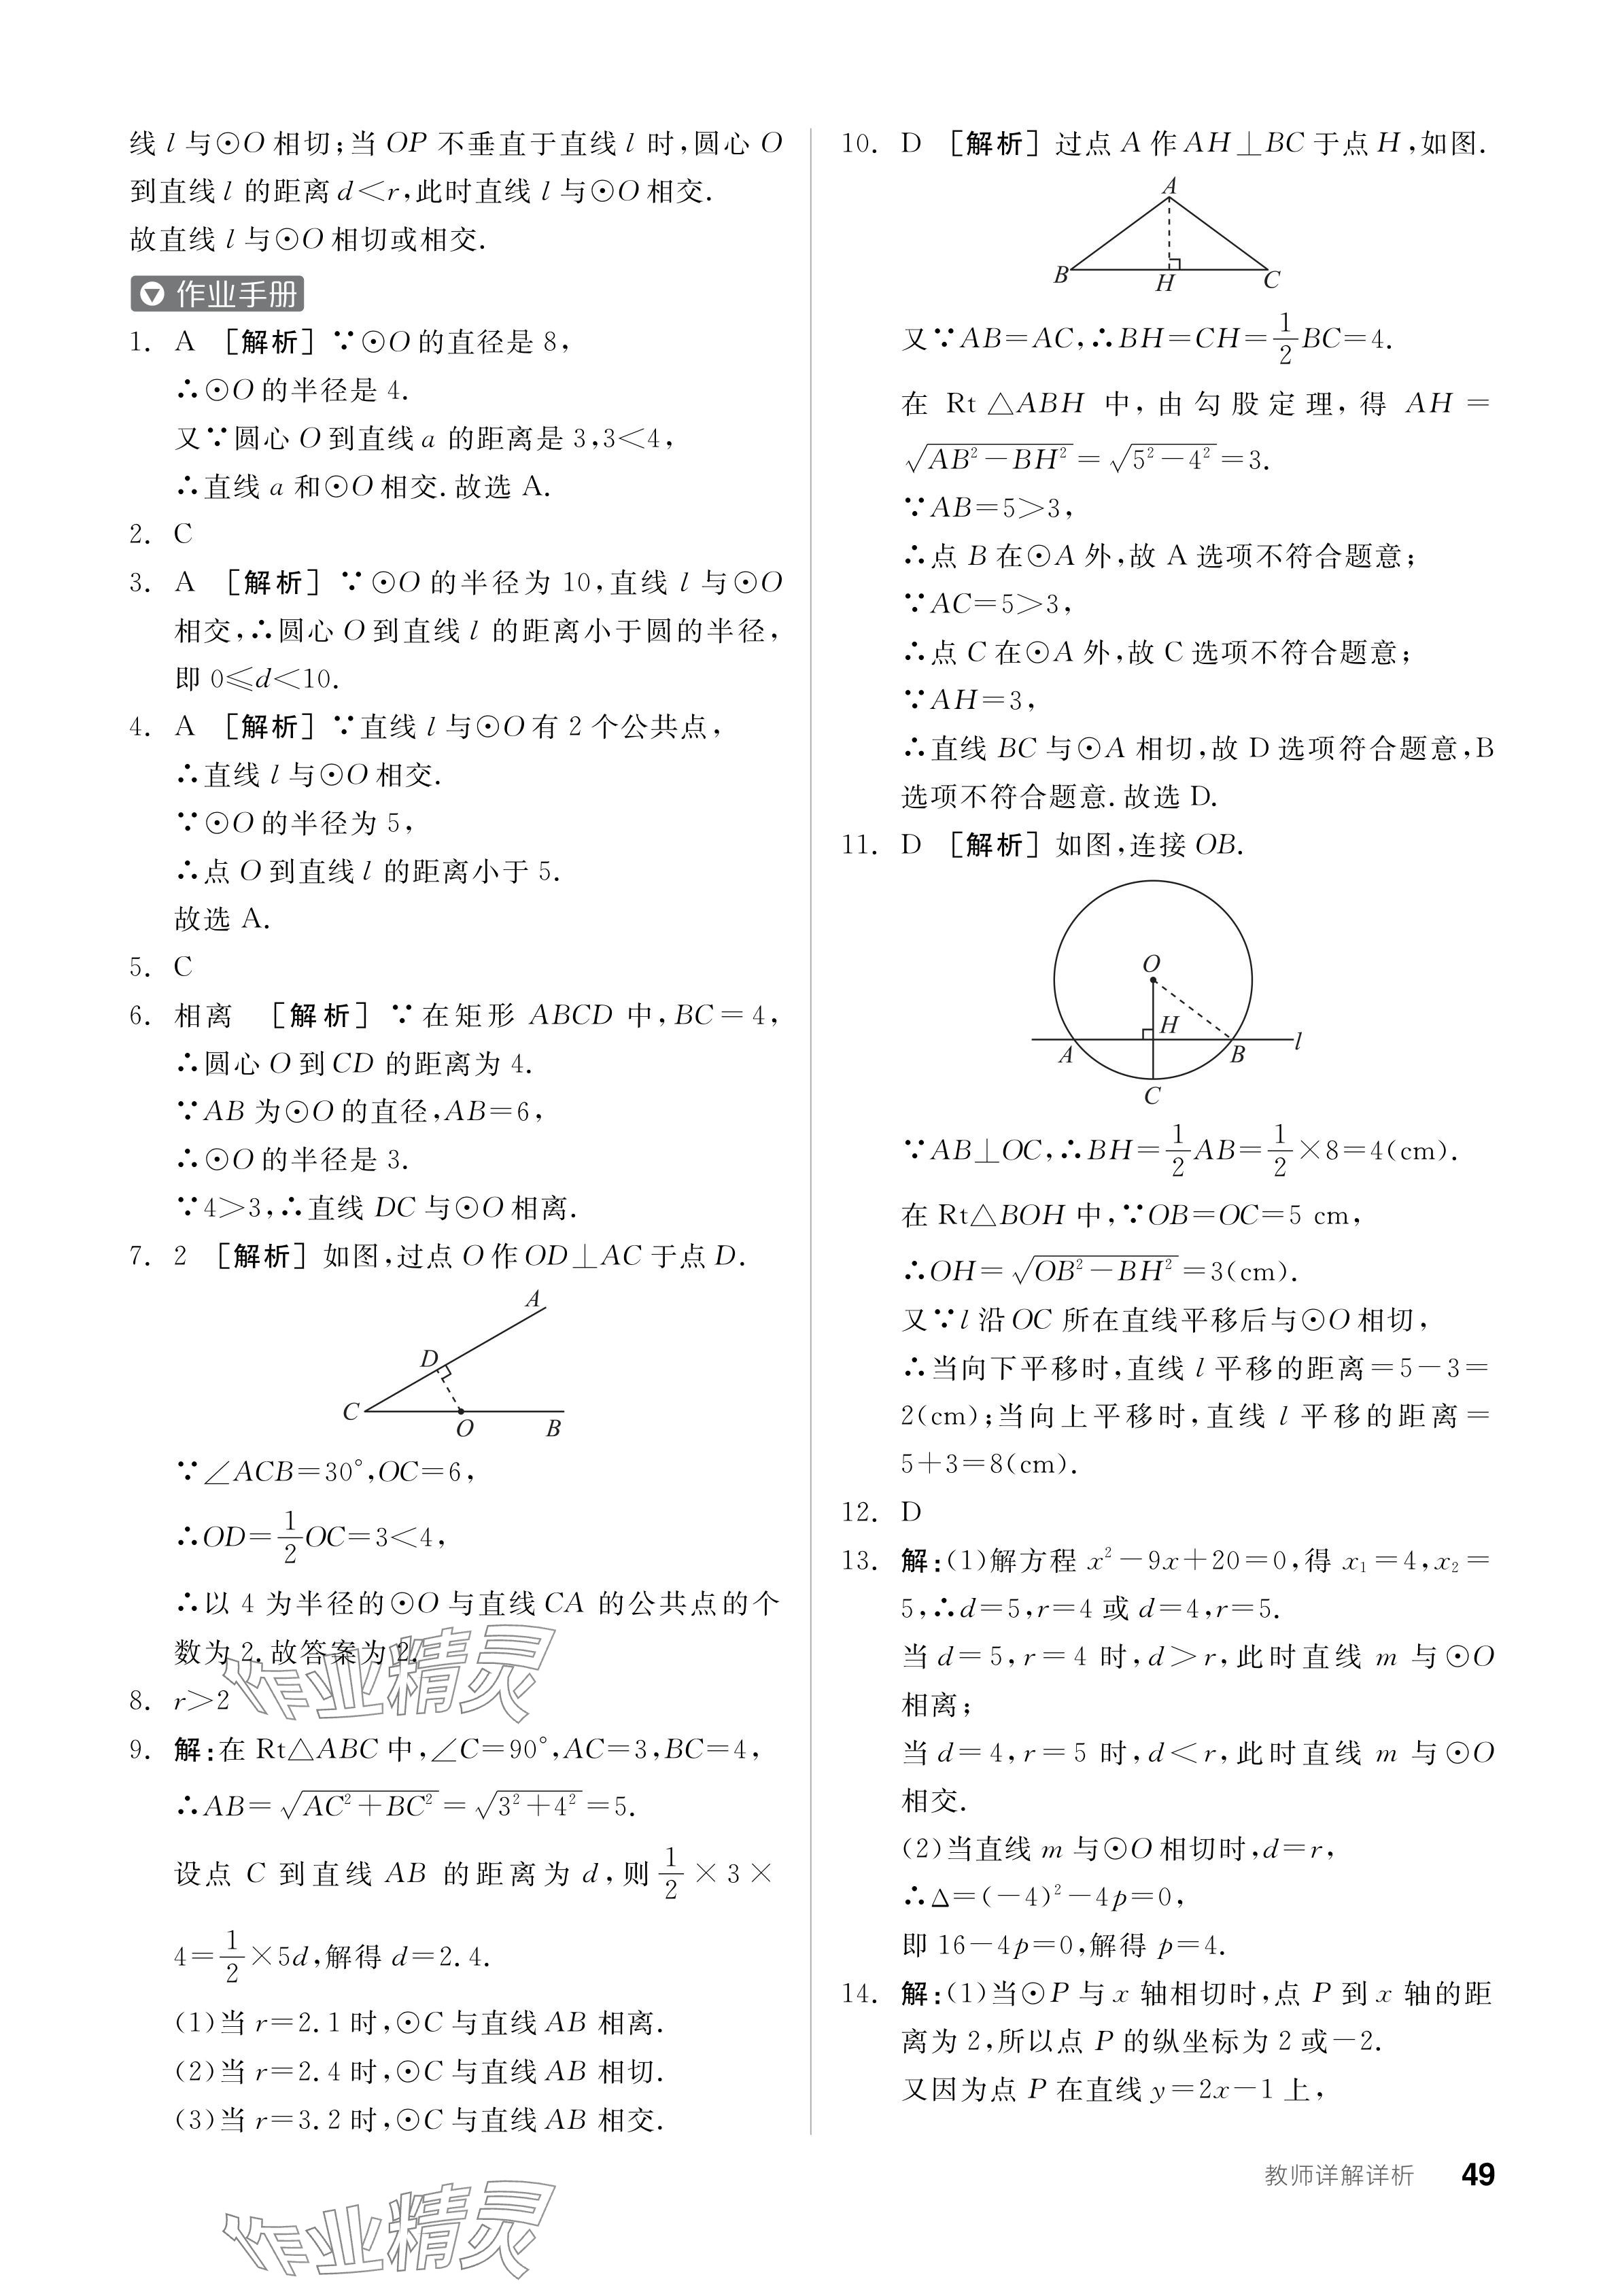 线 l 与⊙O 相切;当 OP 不垂直于直线 l 时,圆心 O
到直线 l 的距离 d<r,此时直线 l 与⊙O 相交.
故直线 l 与⊙O 相切或相交.
作业手册
1. A [解析] ∵⊙O 的直径是 8,
∴⊙O 的半径是 4.
又∵圆心 O 到直线 a 的距离是 3,3<4,
∴直线 a 和⊙O 相交.故选 A.
2. C
3. A [解析] ∵⊙O 的半径为 10,直线 l 与⊙O
相交,∴圆心 O 到直线 l 的距离小于圆的半径,
即 0≤d<10.
4. A [解析] ∵直线 l 与⊙O 有 2 个公共点,
∴直线 l 与⊙O 相交.
∵⊙O 的半径为 5,
∴点 O 到直线 l 的距离小于 5.
故选 A.
5. C
6. 相离 [解析] ∵在矩形 ABCD 中,BC=4,
∴圆心 O 到 CD 的距离为 4.
∵AB 为⊙O 的直径,AB=6,
∴⊙O 的半径是 3.
∵4>3,∴直线 DC 与⊙O 相离.
7. 2 [解析] 如图,过点 O 作 OD⊥AC 于点 D.
A
D
C
O B
∵∠ACB=30°,OC=6,
∴OD=1/2OC=3<4,
∴以 4 为半径的⊙O 与直线 CA 的公共点的个
数为 2.故答案为 2.
8. r>2
9. 解:在 Rt△ABC 中,∠C=90°,AC=3,BC=4,
∴AB=√(AC²+BC²)=√(3²+4²)=5.
设点 C 到直线 AB 的距离为 d,则 1/2×3×
4=1/2×5d,解得 d=2.4.
(1)当 r=2.1 时,⊙C 与直线 AB 相离.
(2)当 r=2.4 时,⊙C 与直线 AB 相切.
(3)当 r=3.2 时,⊙C 与直线 AB 相交.
10. D [解析] 过点 A 作 AH⊥BC 于点 H,如图.
A
B H C
又∵AB=AC,∴BH=CH=1/2BC=4.
在 Rt△ABH 中,由勾股定理,得 AH=
√(AB²-BH²)=√(5²-4²)=3.
∵AB=5>3,
∴点 B 在⊙A 外,故 A 选项不符合题意;
∵AC=5>3,
∴点 C 在⊙A 外,故 C 选项不符合题意;
∵AH=3,
∴直线 BC 与⊙A 相切,故 D 选项符合题意,B
选项不符合题意.故选 D.
11. D [解析] 如图,连接 OB.
O
H
A B l
C
∵AB⊥OC,∴BH=1/2AB=1/2×8=4(cm).
在 Rt△BOH 中,∵OB=OC=5 cm,
∴OH=√(OB²-BH²)=3(cm).
又∵l 沿 OC 所在直线平移后与⊙O 相切,
∴当向下平移时,直线 l 平移的距离=5-3=
2(cm);当向上平移时,直线 l 平移的距离=
5+3=8(cm).
12. D
13. 解:(1)解方程 x²-9x+20=0,得 x₁=4,x₂=
5,∴d=5,r=4 或 d=4,r=5.
当 d=5,r=4 时,d>r,此时直线 m 与⊙O
相离;
当 d=4,r=5 时,d<r,此时直线 m 与⊙O
相交.
(2)当直线 m 与⊙O 相切时,d=r,
∴Δ=(-4)²-4p=0,
即 16-4p=0,解得 p=4.
14. 解:(1)当⊙P 与 x 轴相切时,点 P 到 x 轴的距
离为 2,所以点 P 的纵坐标为 2 或-2.
又因为点 P 在直线 y=2x-1 上,
教师详解详析 49
作业精灵
作业精灵